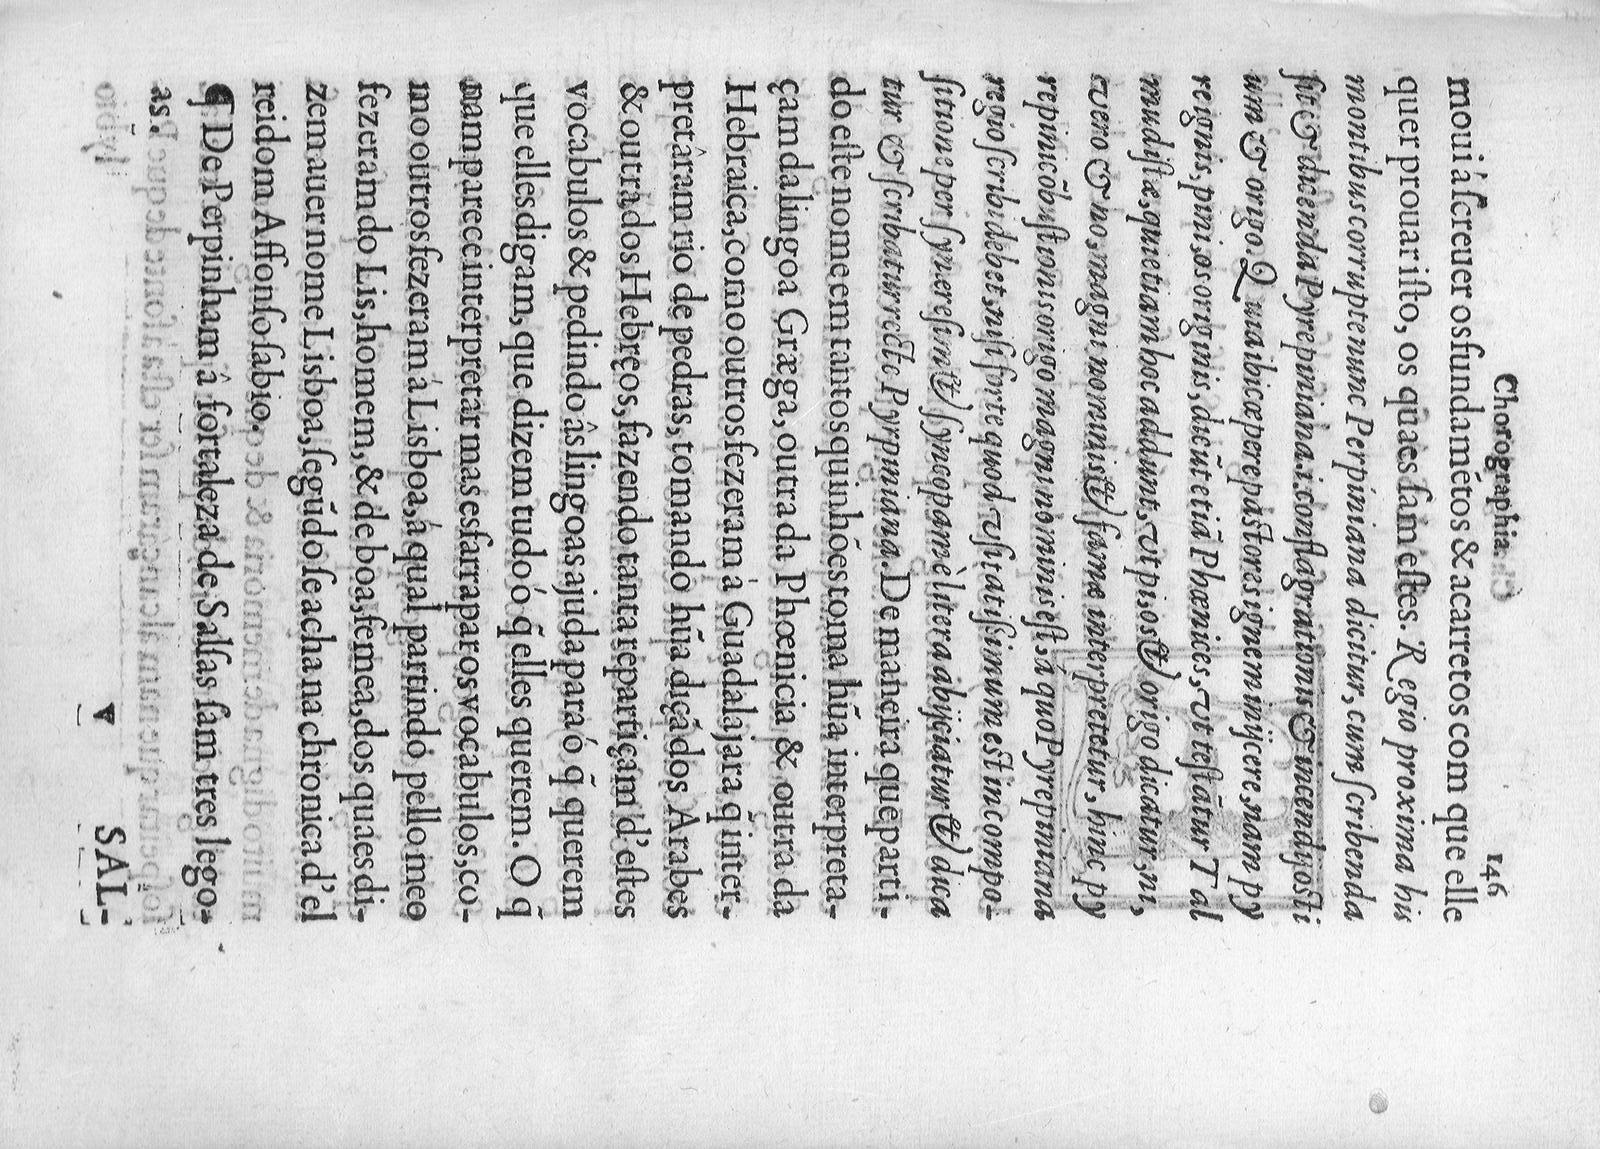 Chorographia. 146
moui á ſcreuer os fundamẽtos & acarretos com que elle
quer prouar iſto, os quaes ſam eſtes. Regio proxima his
montibus corrupte nunc Perpiniana dicitur, cum ſcribenda
ſit & dicenda Pyrepiniana. i. conflagrationis & incendij oſti
um & origo. Quia ibi cæpere paſtores ignem inijcere, nam py
re ignis, pini, os originis, dicũt etiã Phœnices, vt teſtãtur Tal
mudiſtæ, qui etiam hoc addunt, vt pi, os & origo dicatur, ni,
vero & no, magni nominis & famæ interpretetur, hinc py
repini cõbuſtoni origo magni nominis eſt, á quo Pyrepiniana
regio ſcribi debet, niſi forte quod vſitatiſsimum eſt in compo-
ſitione per ſynereſim & ſyncopam è litera abijciatur & dica
tur & ſcribatur recte Pyrpiniana. De maneira que parti-
do eſte nome em tantos quinhões toma hũa interpreta-
çam da lingoa Græga, outra da Phœnicia & outra da
Hebraica, como outros fezeram á Guadalajara q̃ inter-
pretâram rio de pedras, tomando hũa diçã dos Arabes
& outra dos Hebreos, fazendo tanta repartiçam d'eſtes
vocabulos & pedindo âs lingoas ajuda para ó q̃ querem
que elles digam, que dizem tudo ó q̃ elles querem. O q̃
nam parece interpretar mas esfarrapar os vocabulos, co-
mo outros fezeram á Lisboa, á qual partindo pello meo
fezeram do Lis, homem, & de boa, femea, dos quaes di-
zem auer nome Lisboa, ſegũdo ſe acha na chronica d'el
rei dom Affonſo ſabio.
¶ De Perpinham â fortaleza de Salſas ſam tres lego-
as.
SAL-